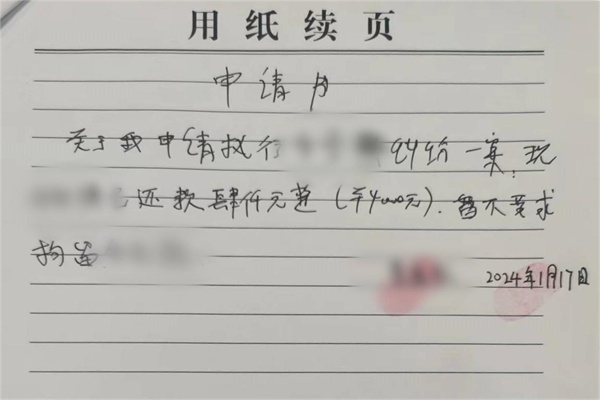 用纸续页
申请书
关于我申请执行 纠纷一案,现
还款肆仟元整(¥4000元).暂不要求
拘留
2024年1月17日